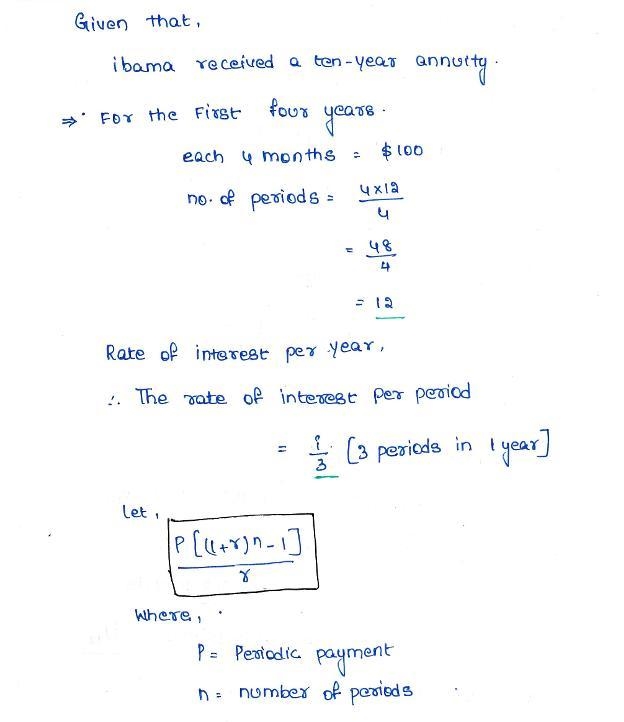 Given that,
ibama received a ten-year annuity.
⇒ For the First four years.
each 4 months = $100
no. of periods = 4x12
4
= 48
4
= 12
Rate of interest per year,
∴ The rate of interest per period
= i [3 periods in 1 year]
3
Let,
P[(1+r)n-1]
r
Where,
P = Periodic payment
n = number of periods